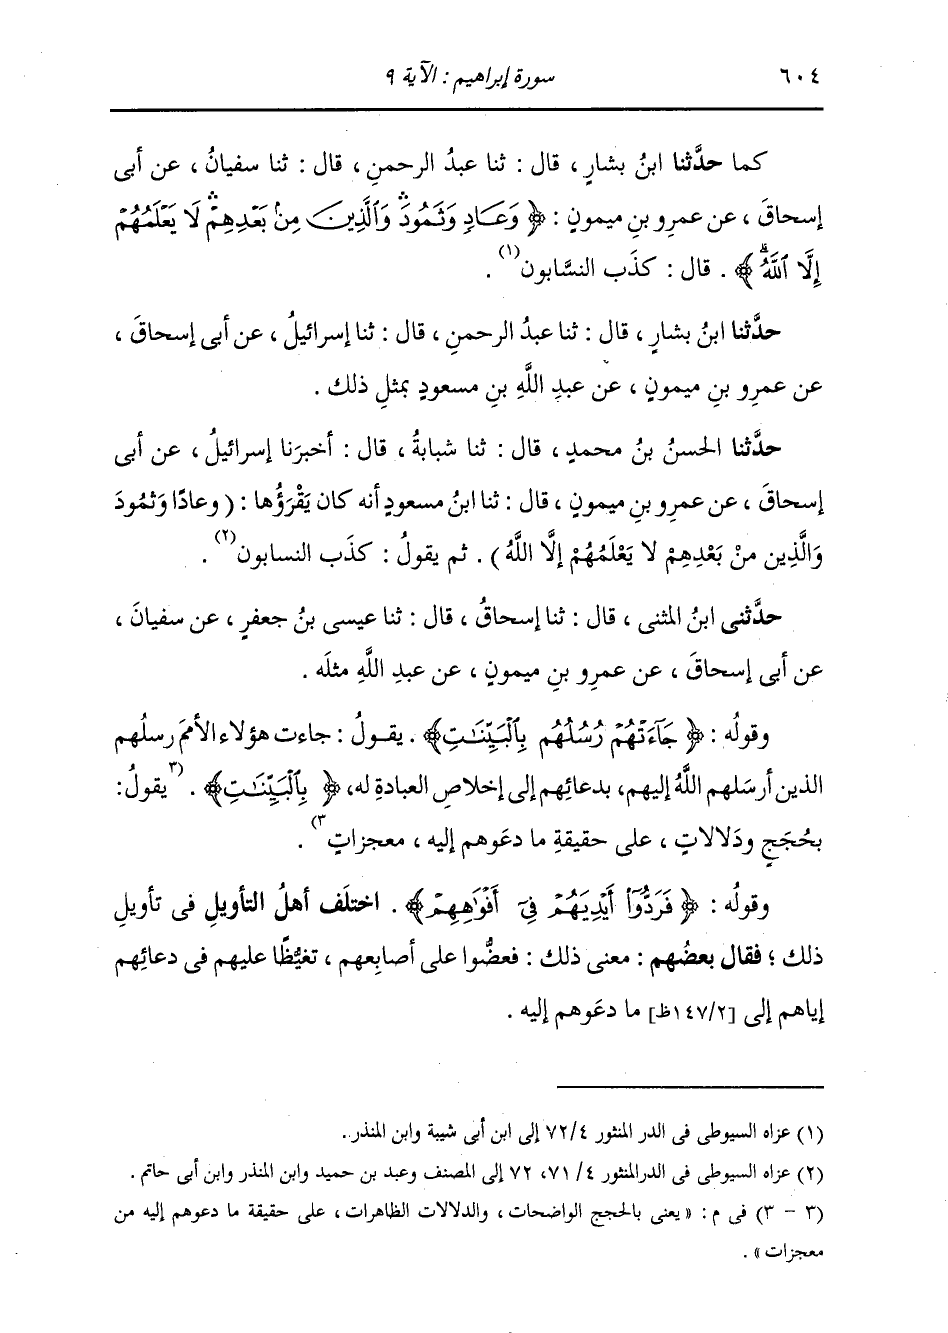 ٦٠٤ سورة إبراهيم : الآية ٩
كما حدَّثنا ابنُ بشارٍ ، قال : ثنا عبدُ الرحمنِ ، قال : ثنا سفيانُ ، عن أبى
إسحاقَ ، عن عمرِو بنِ ميمونٍ : ﴿ وَعَادٍ وَثَمُودَۛ وَٱلَّذِينَ مِنۢ بَعْدِهِمْۛ لَا يَعْلَمُهُمْ
إِلَّا ٱللَّهُۚ ﴾ . قال : كذَب النسَّابون(١) .
حدَّثنا ابنُ بشارٍ ، قال : ثنا عبدُ الرحمنِ ، قال : ثنا إسرائيلُ ، عن أبى إسحاقَ ،
عن عمرِو بنِ ميمونٍ ، عن عبدِ اللَّهِ بنِ مسعودٍ بمثلِ ذلك .
حدَّثنا الحسنُ بنُ محمدٍ ، قال : ثنا شبابةُ ، قال : أخبرَنا إسرائيلُ ، عن أبى
إسحاقَ ، عن عمرِو بنِ ميمونٍ ، قال : ثنا ابنُ مسعودٍ أنه كان يَقْرَؤُها : ( وعادًا وَثمُودَ
وَالَّذِين منْ بَعْدِهِمْ لا يَعْلَمُهُمْ إلَّا اللَّهُ ) . ثم يقولُ : كذَب النسابون(٢) .
حدَّثنى ابنُ المثنى ، قال : ثنا إسحاقُ ، قال : ثنا عيسى بنُ جعفرٍ ، عن سفيانَ ،
عن أبى إسحاقَ ، عن عمرِو بنِ ميمونٍ ، عن عبدِ اللَّهِ مثلَه .
وقولُه : ﴿ جَآءَتْهُمْ رُسُلُهُم بِٱلْبَيِّنَٰتِ﴾ . يقــولُ : جاءت هؤلاء الأممَ رسلُهم
الذين أرسَلهم اللَّهُ إليهم، بدعائِهم إلى إخلاصِ العبادةِ له، ﴿ بِٱلْبَيِّنَٰتِ﴾ . (٣يقولُ :
بحُجَجٍ ودَلالاتٍ ، على حقيقةِ ما دعَوهم إليه ، معجزاتٍ٣) .
وقولُه : ﴿ فَرَدُّوٓا۟ أَيْدِيَهُمْ فِىٓ أَفْوَٰهِهِمْ﴾ . اختلَف أهلُ التأويلِ فى تأويلِ
ذلك ؛ فقال بعضُهم : معنى ذلك : فعضُّوا على أصابِعهم ، تغيُّظًا عليهم فى دعائِهم
إياهم إلى [١٤٧/٢ظ] ما دعَوهم إليه .
(١) عزاه السيوطى فى الدر المنثور ٧٢/٤ إلى ابن أبى شيبة وابن المنذر .
(٢) عزاه السيوطى فى الدرالمنثور ٤/ ٧١، ٧٢ إلى المصنف وعبد بن حميد وابن المنذر وابن أبى حاتم .
(٣ - ٣) فى م : « يعنى بالحجج الواضحات ، والدلالات الظاهرات ، على حقيقة ما دعوهم إليه من
معجزات » .